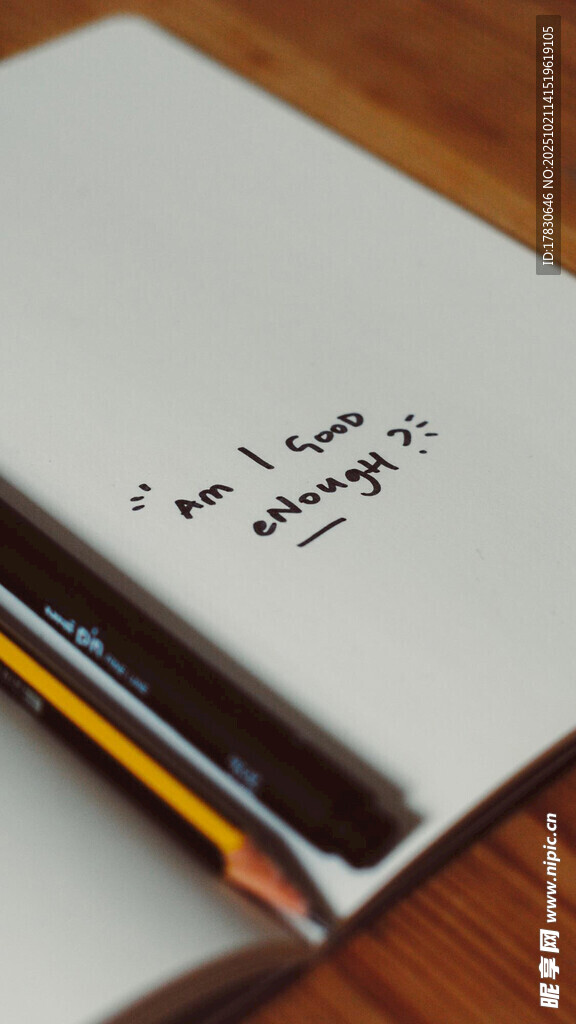 Am I Good
eNougH?
uni pin
ID:17830646 NO:20251021141519619105
昵享网 www.nipic.cn